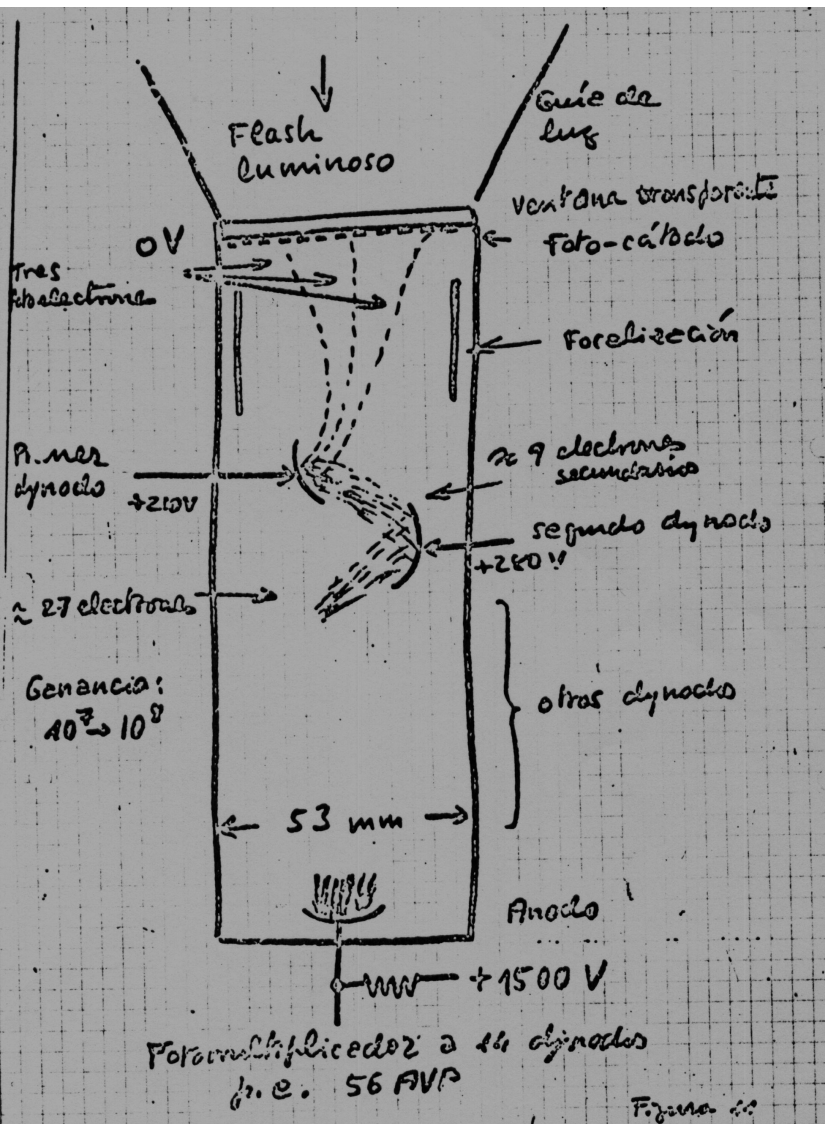 Flash
luminoso
Guíe de
luz
Ventana transparente
0V
Foto-cátodo
Tres
fotoelectrones
Focelizeción
Pr.mer
dynodo
+210V
≈ 9 electrones
secundarios
segundo dynodo
+280 V
≈ 27 electrones
Genancia:
10⁷→10⁸
otros dynodos
53 mm
Anodo
+1500 V
Fotomultiplicedor a 14 dynodos
p.e. 56 AVP
Figura